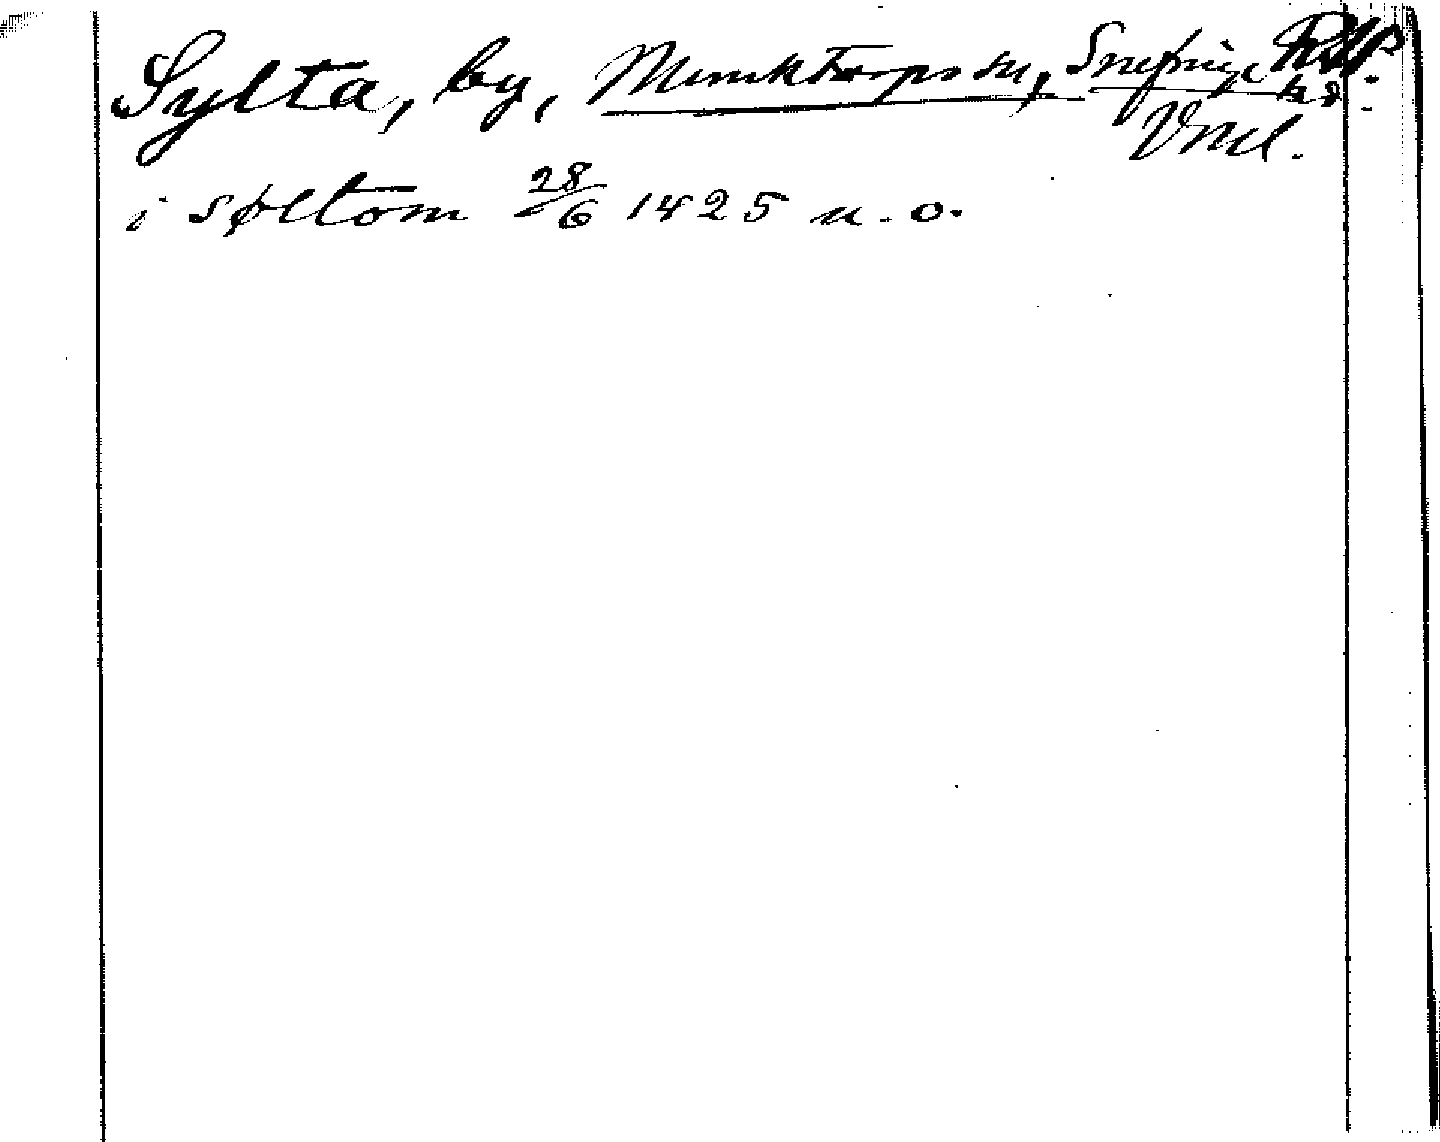 Sylta, by, Munktorps sn, Snefringe hd
Vml.
i søltom 28/6 1425 u. o.